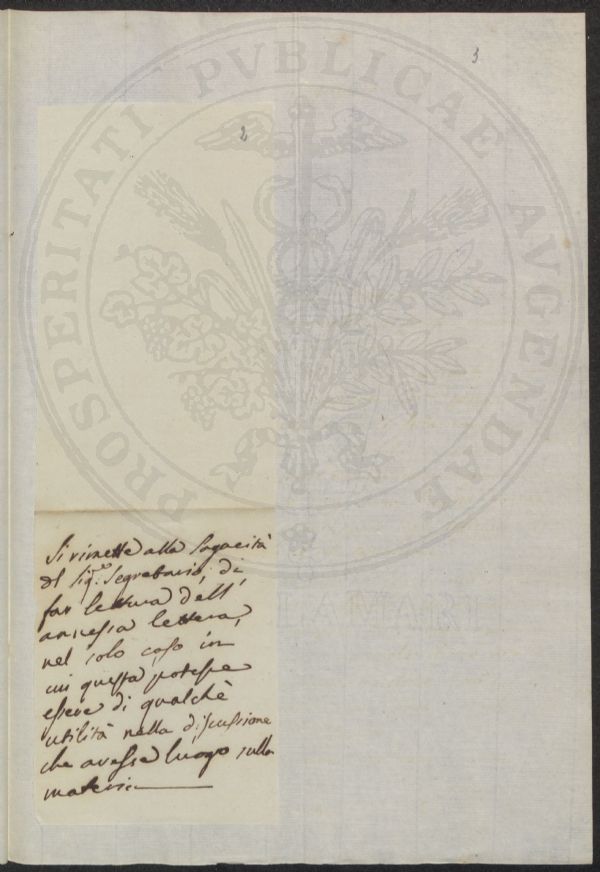 3
2
PROSPERITATI PVBLICAE AVGENDAE
Si rimette alla Sagacità
del Sig.ro Segretario, di
far lettura dell'
annessa lettera,
nel solo caso in
cui questa potesse
essere di qualchè
utilità nella discussione
che avesse luogo sulla
materia